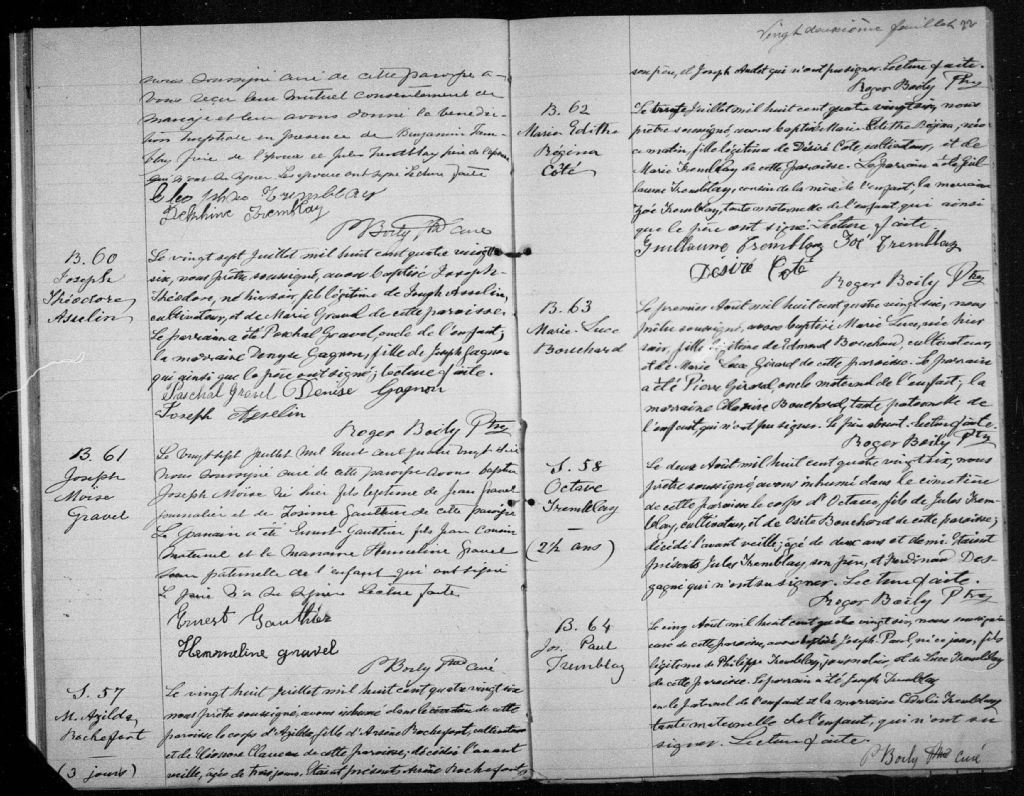 nous soussigné curé de cette paroisse a-
vons reçu leur mutuel consentement de
mariage et leur avons donné la bénédic-
tion nuptiale en présence de Benjamin Trem-
blay frère de l'époux et Jules Tremblay père de l'épouse
qui n'ont su signer. Les époux ont signé Lecture faite
Tremblay
Delphine Tremblay
P Boily Ptre Curé
B. 60
Joseph
Théodore
Asselin
Le vingt sept Juillet mil huit cent quatre vingt
six, nous prêtre soussigné, avons baptisé Joseph-
Théodore, né hier soir, fils légitime de Joseph Asselin,
cultivateur, et de Marie Gravel de cette paroisse.
Le parrain a été Paschal Gravel, oncle de l'enfant;
la marraine Denyse Gagnon, fille de Joseph Gagnon
qui ainsi que le père ont signé; lecture faite.
Paschal Gravel Denise Gagnon
Joseph Asselin
Roger Boily Ptre
B. 61
Joseph
Moïse
Gravel
Le vingt sept Juillet mil huit cent quatre vingt six
nous soussigné curé de cette paroisse avons baptisé
Joseph Moise né hier fils légitime de Jean Gravel
journalier et de Zosime Gauthier de cette paroisse
Le parrain a été Ernest Gauthier fils Jean cousin
maternel et la marraine Hemmeline Gravel
soeur paternelle de l'enfant qui ont signé
Le père n'a su signer Lecture faite
Ernest Gauthier
Hemmeline gravel
P Boily Ptre Curé
S. 57
M. Azilda
Rochefort
(3 jours)
Le vingt huit Juillet mil huit cent quatre vingt six
nous prêtre soussigné, avons inhumé dans le cimetière de cette
paroisse le corps d'Azilda, fille d'Arsène Rochefort, cultivateur
et de Eléonore Claveau de cette paroisse, décédée l'avant
veille, âgée de trois jours. Etaient présents Arsène Rochefort,
Vingt deuxième feuillet 22
son père, et Joseph Audet qui n'ont pu signer. Lecture faite.
Roger Boily Ptre
B. 62
Marie Edithe
Régina
Côté
Le trente Juillet mil huit cent quatre vingt six, nous
prêtre soussigné, avons baptisé Marie Edithe Régina, née
ce matin, fille légitime de Désiré Coté, cultivateur, et de
Marie Tremblay de cette Paroisse. Le parrain a été Guil-
laume Tremblay, cousin de la mère de l'enfant, la marraine
Zoé Tremblay, tante maternelle de l'enfant qui ainsi
que le père ont signé. Lecture faite.
Guillaume Tremblay Zoé Tremblay
Désiré Coté
Roger Boily Ptre
B. 63
Marie-Luce
Bouchard
Le premier Août mil huit cent quatre vingt six, nous
prêtre soussigné, avons baptisé Marie Luce, née hier
soir, fille légitime de Edmond Bouchard, cultivateur,
et de Marie Luce Girard de cette paroisse. Le parrain
a été Pierre Girard, oncle maternel de l'enfant; la
marraine Bouchard, tante paternelle de
l'enfant, qui n'ont pu signer. Le père absent. Lecture faite.
Roger Boily Ptre
S. 58
Octave
Tremblay
(2½ ans)
Le deux Août mil huit cent quatre vingt six, nous
prêtre soussigné, avons inhumé dans le cimetière
de cette paroisse le corps d'Octave, fils de Jules Trem-
blay, cultivateur, et de Osite Bouchard de cette paroisse;
décédé l'avant veille; âgé de deux ans et demi. Etaient
présents Jules Tremblay, son père, et Ferdinand Des-
gagné qui n'ont su signer. Lecture faite.
Roger Boily Ptre
B. 64
Jos. Paul
Tremblay
Le cinq Août mil huit cent quatre vingt six, nous soussigné
curé de cette paroisse, avons baptisé Joseph-Paul né ce jour, fils
légitime de Philippe Tremblay, journalier, et de Luce Tremblay
de cette paroisse. Le parrain a été Joseph Tremblay
oncle paternel de l'enfant et la marraine Tremblay
tante maternelle de l'enfant, qui n'ont su
signer. Lecture faite.
P Boily Ptre Curé